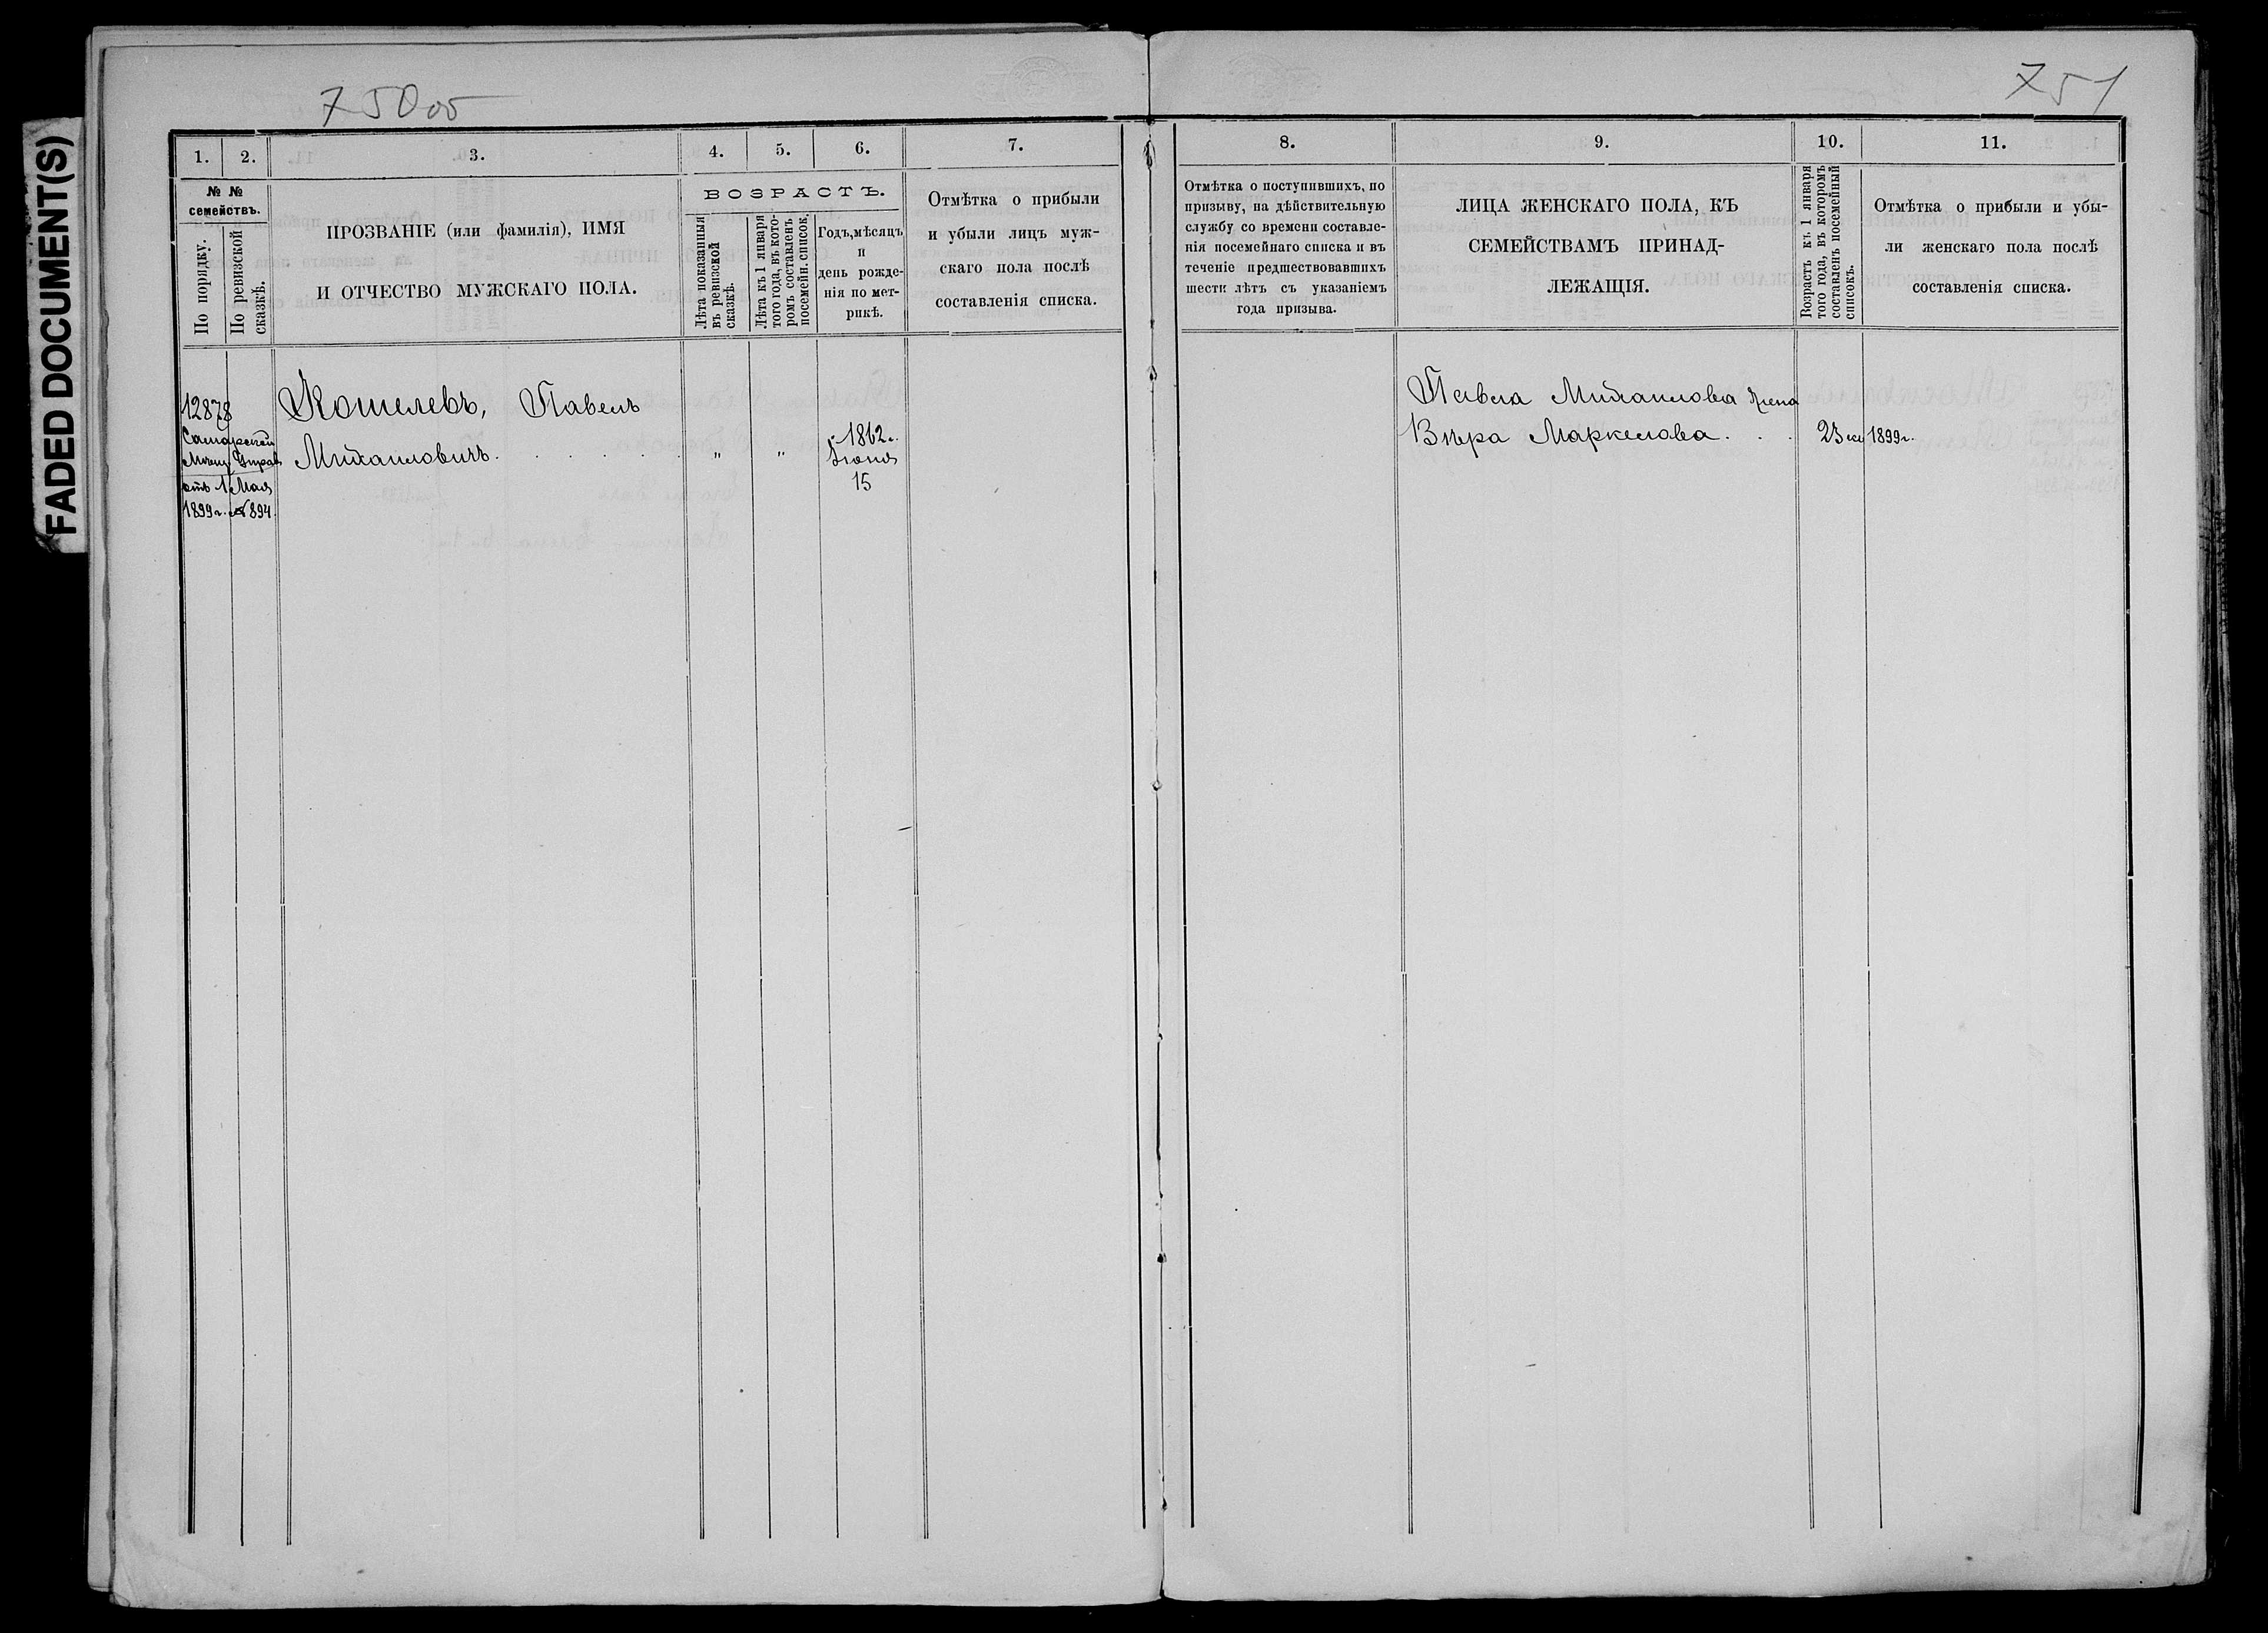 FADED DOCUMENT(S)
750об
1. 2. 3. 4. 5. 6. 7.
№ №
семействъ.
По порядку.
По ревизской
сказкѣ.
ПРОЗВАНІЕ (или фамилія), ИМЯ
И ОТЧЕСТВО МУЖСКАГО ПОЛА.
ВОЗРАСТЪ.
Лѣта показанныя
въ ревизской
сказкѣ.
Лѣта къ 1 января
того года, въ кото-
ромъ составленъ
посемейн. список.
Годъ, мѣсяцъ
и
день рожде-
нія по мет-
рикѣ.
Отмѣтка о прибыли
и убыли лицъ муж-
скаго пола послѣ
составленія списка.
12878
Самарской
Мѣщ. Управ
отъ 1 Мая
1899 г. № 894.
Кошелевъ, Павелъ
Михаиловичъ. . . . . .
„ „
1862 г.
Іюня
15
751
8. 9. 10. 11.
Отмѣтка о поступившихъ, по
призыву, на дѣйствительную
службу со времени составле-
нія посемейнаго списка и въ
теченіе предшествовавшихъ
шести лѣтъ съ указаніемъ
года призыва.
ЛИЦА ЖЕНСКАГО ПОЛА, КЪ
СЕМЕЙСТВАМЪ ПРИНАД-
ЛЕЖАЩІЯ.
Возрастъ къ 1 января
того года, въ которомъ
составленъ посемейный
списокъ.
Отмѣтка о прибыли и убы-
ли женскаго пола послѣ
составленія списка.
Павла Михаилова жена
Вѣра Маркелова. . . 23 1899 г.